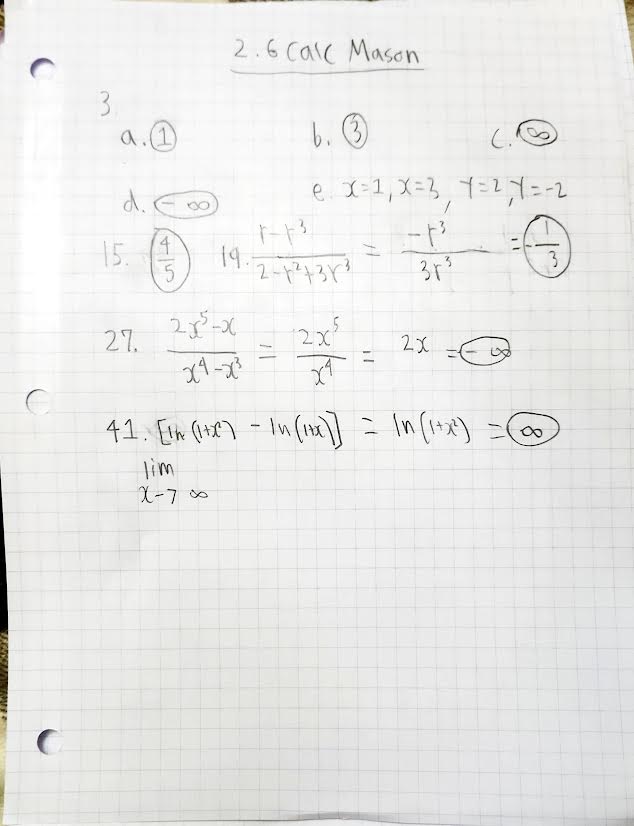 2.6 Calc Mason
3.
a. 1 b. 3 c. ∞
d. -∞ e. x=1, x=3, y=2, y=-2
15. 4/5 19. (r-r^3)/(2-r^2+3r^3) = (-r^3)/(3r^3) = -1/3
27. (2x^5-x)/(x^4-x^3) = 2x^5/x^4 = 2x = -∞
41. [ln(1+x^2) - ln(1+x)] = ln(1+x^2) = ∞
lim
x→∞